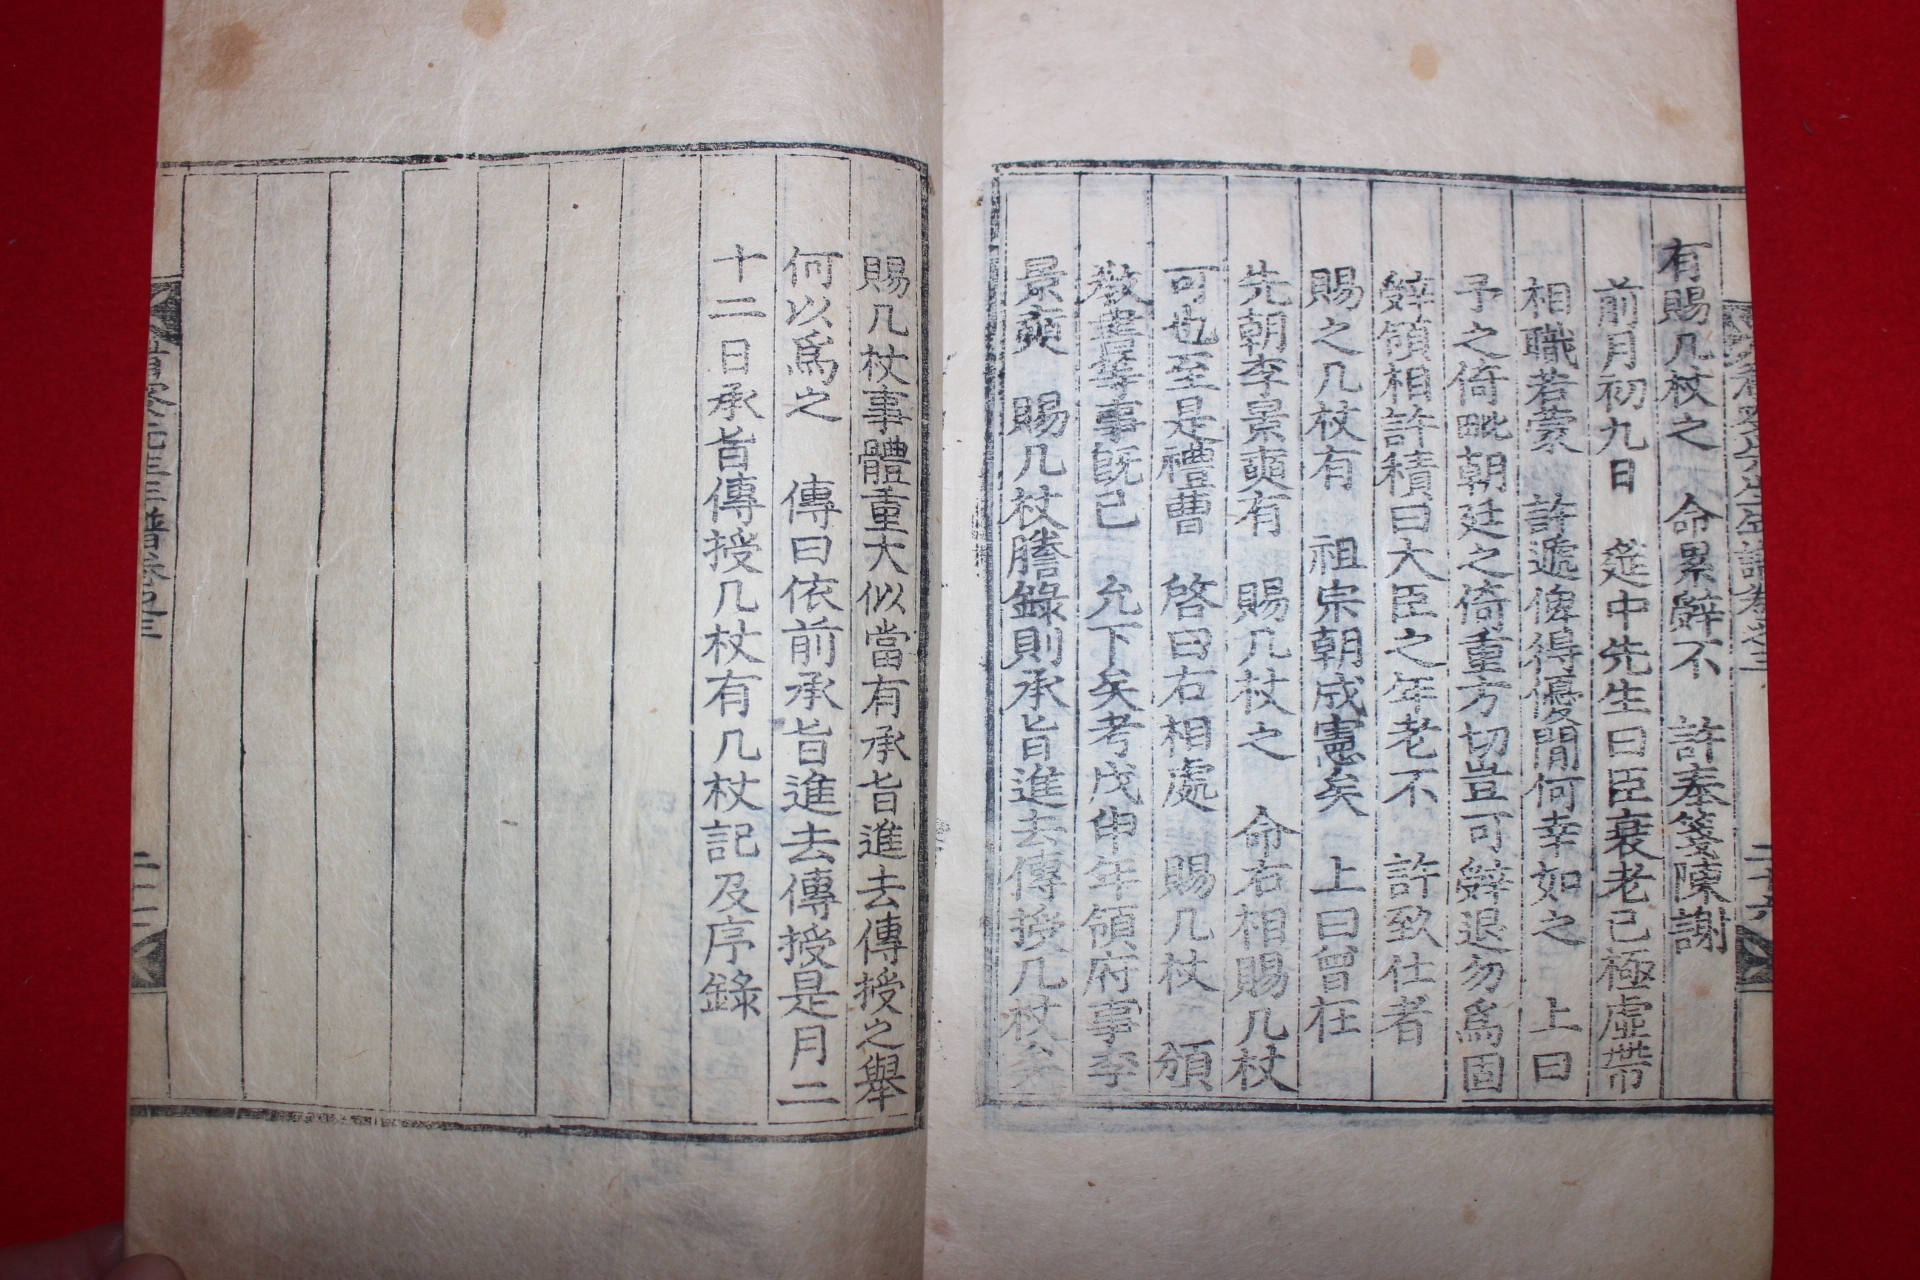 有賜几杖之 命累辭不 許奉箋陳謝
前月初九日 筵中先生曰臣衰老已極虛帶
相職若蒙 許遞俾得優閒何幸如之 上曰
予之倚毗朝廷之倚重方切豈可辭退勿爲固
辭領相許積曰大臣之年老不 許致仕者
賜之几杖有 祖宗朝成憲矣 上曰曾在
先朝李景奭有 賜几杖之 命右相賜几杖
可也至是禮曹 啓曰右相處 賜几杖 頒
敎書等事旣已 允下矣考戊申年領府事李
景奭 賜几杖謄錄則承旨進去傳授几杖矣
賜几杖事體重大似當有承旨進去傳授之擧
何以爲之 傳曰依前承旨進去傳授是月二
十二日承旨傳授几杖有几杖記及序錄